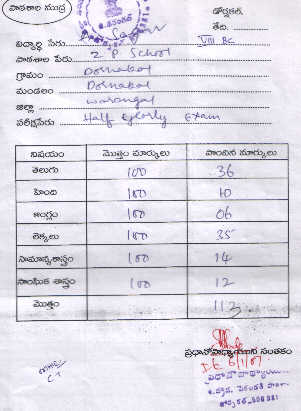 పాఠశాల ముద్ర
డోర్నకల్.
తేది.
విద్యార్థి పేరు
VIII BC
పాఠశాల పేరు Z P School
గ్రామం Dornakal
మండలం Dornakal
జిల్లా Warangal
పరీక్షపేరు Half yearly Exam
విషయం మొత్తం మార్కులు పొందిన మార్కులు
తెలుగు 100 36
హింది 100 10
ఆంగ్లం 100 06
లెక్కలు 100 35
సామాన్యశాస్త్రం 100 14
సాంఘిక శాస్త్రం 100 12
మొత్తం 113
ప్రధానోపాధ్యాయుని సంతకం
6/1/07
C.T
ప్రధానోపాధ్యాయ